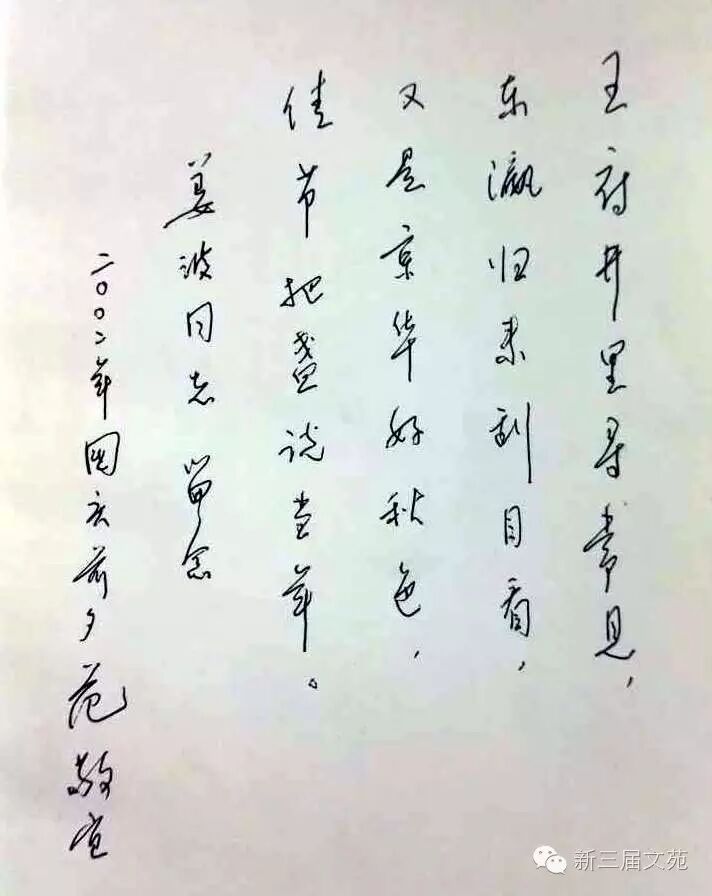 王府井里寻常见，
东瀛归来刮目看，
又是京华好秋色，
佳节把盏说当年。
姜波同志 留念
二〇〇二年国庆前夕 范敬宜
新三届文苑